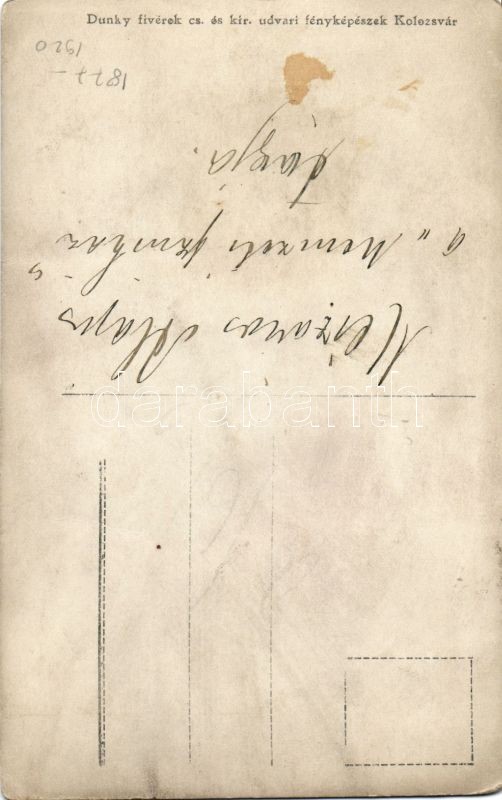 Dunky fivérek cs. és kir. udvari fényképészek Kolozsvár
1877 –
1920
Mészáros Alajos
a „Nemzeti színház"
tagja.
darabanth